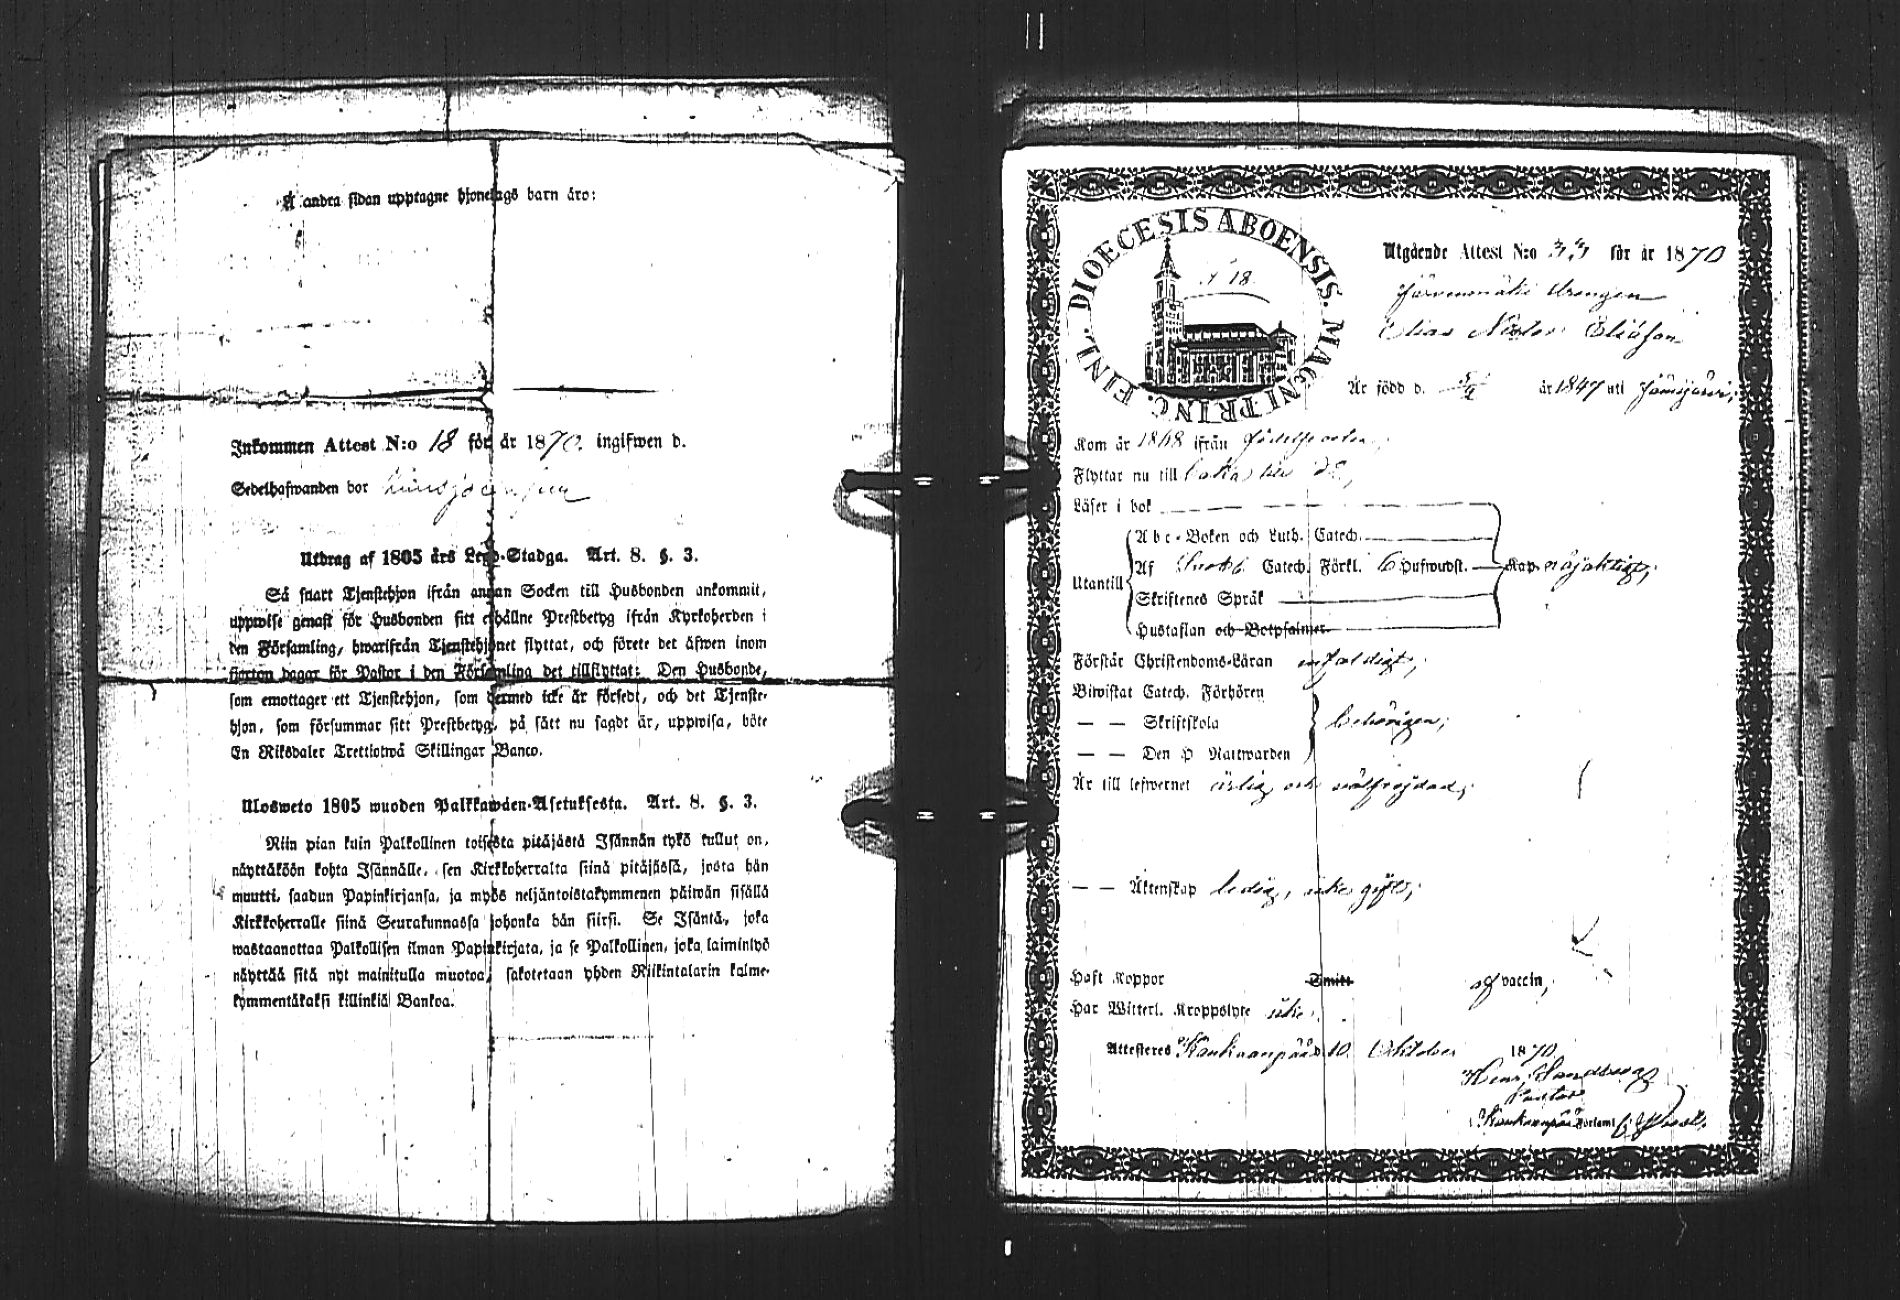 Å andra sidan upptagne hjonelags barn äro:
Inkommen Attest N:o 18 för år 1870. ingifwen d.
Sedelhafwanden bor
Utdrag af 1805 års Lego-Stadga. Art. 8. §. 3.
Så snart Tjenstehjon ifrån annan Socken till Husbonden ankommit,
uppwise genast för Husbonden sitt erhållne Prestbetyg ifrån Kyrkoherden i
den Församling, hwarifrån Tjenstehjonet flyttat, och förete det äfwen inom
fjorton dagar för Pastor i den Församling det tillflyttat: Den Husbonde,
som emottager ett Tjenstehjon, som dermed icke är försedt, och det Tjenste-
hjon, som försummar sitt Prestbetyg, på sätt nu sagdt är, uppwisa, böte
En Riksdaler Trettiotwå Skillingar Banco.
Ulosweto 1805 wuoden Palkkawäen-Asetuksesta. Art. 8. §. 3.
Niin pian kuin Palkollinen toisesta pitäjästä Isännän tykö tullut on,
näyttäköön kohta Isännälle, sen Kirkkoherralta siinä pitäjässä, josta hän
muutti, saadun Papinkirjansa, ja myös neljäntoistakymmenen päiwän sisällä
Kirkkoherralle siinä Seurakunnassa johonka hän siirsi. Se Isäntä, joka
wastaanottaa Palkollisen ilman Papinkirjata, ja se Palkollinen, joka laiminlyö
näyttää sitä nyt mainitulla muotoa, sakotetaan yhden Riikintalarin kolme-
kymmentäkaksi killinkiä Bankoa.
DIOECESIS ABOENSIS. MAGNI PRINC. FINL.
N 18
Utgående Attest N:o 33 för år 1870
Järvenmäki drengen
Elias Nestor Eliasson
Är född d. 5/4 år 1847 uti Jämijärvi;
Kom år 1868 ifrån födelseorten;
Flyttar nu till
Läser i bok
Utantill
Abc-Boken och Luth. Catech.
Af Catech. Förkl. 6 Hufwudst. Kap. nöjaktigt;
Skriftenes Språk
Hustaflan och Botpsalmer
Förstår Christendoms-Läran enfaldigt;
Biwistat Catech. Förhören
— — Skriftskola behörigen;
— — Den H Nattwarden
Är till lefwernet ärlig och välfrejdad;
— — Äktenskap ledig, icke gift;
Haft Koppor Smitt af vaccin,
Har Witterl. Kroppslyte icke.
Attesteras Kankaanpää d. 10 Oktober 1870
Henr. Sandberg
Pastor
i Kankaanpää Församl.